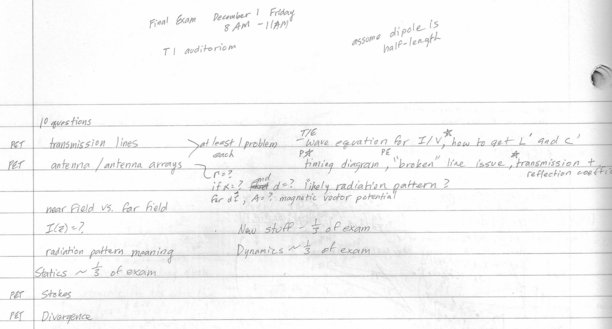 Final Exam December 1 Friday
8 AM - 11 AM
T I auditorium
assume dipole is
half-length
10 questions
PET transmission lines > at least 1 problem each T/E - wave equation for I/V, * how to get L' and C'
PET antenna/antenna arrays P* timing diagram, PE "broken" line issue, * transmission +
reflection coeffi
r=?
if x=? and d=? likely radiation pattern?
for d? A=? magnetic vector potential
near field vs. far field
I(z)=?
New stuff - 1/3 of exam
radiation pattern meaning
Dynamics ~ 1/3 of exam
Statics ~ 1/3 of exam
PET Stokes
PET Divergence